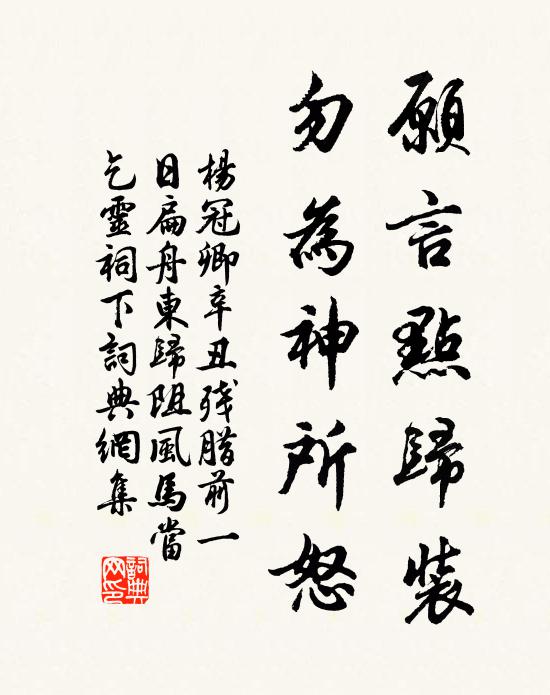 願言點歸裝
勿為神所怒
楊冠卿辛丑殘腊前一
日扁舟東歸阻風馬當
乞靈祠下詞典網集
詞典
网印